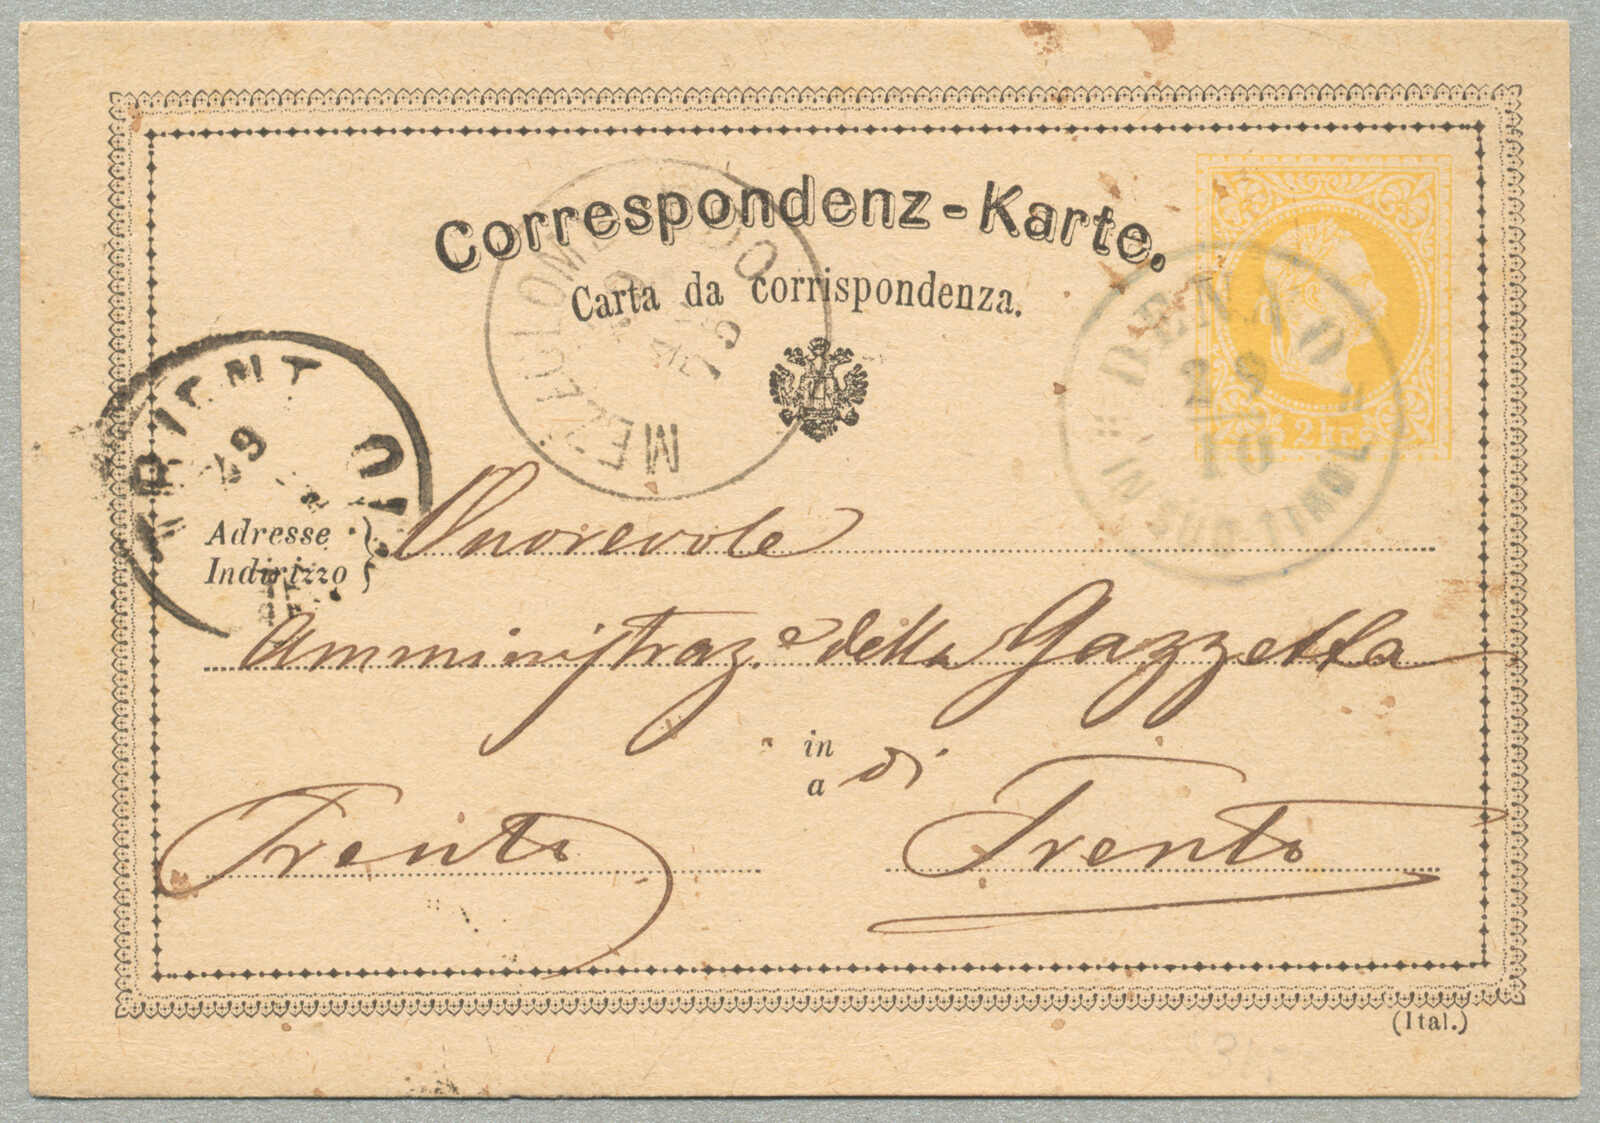 Correspondenz-Karte.
Carta da corrispondenza.
2 kr.
MEZZOLOMBARDO
DENNO
29
10
IN SÜD-TIROL
Adresse
Indirizzo
Onorevole
Amministraz.e della Gazzetta
in
a di
Trento Trento
(Ital.)